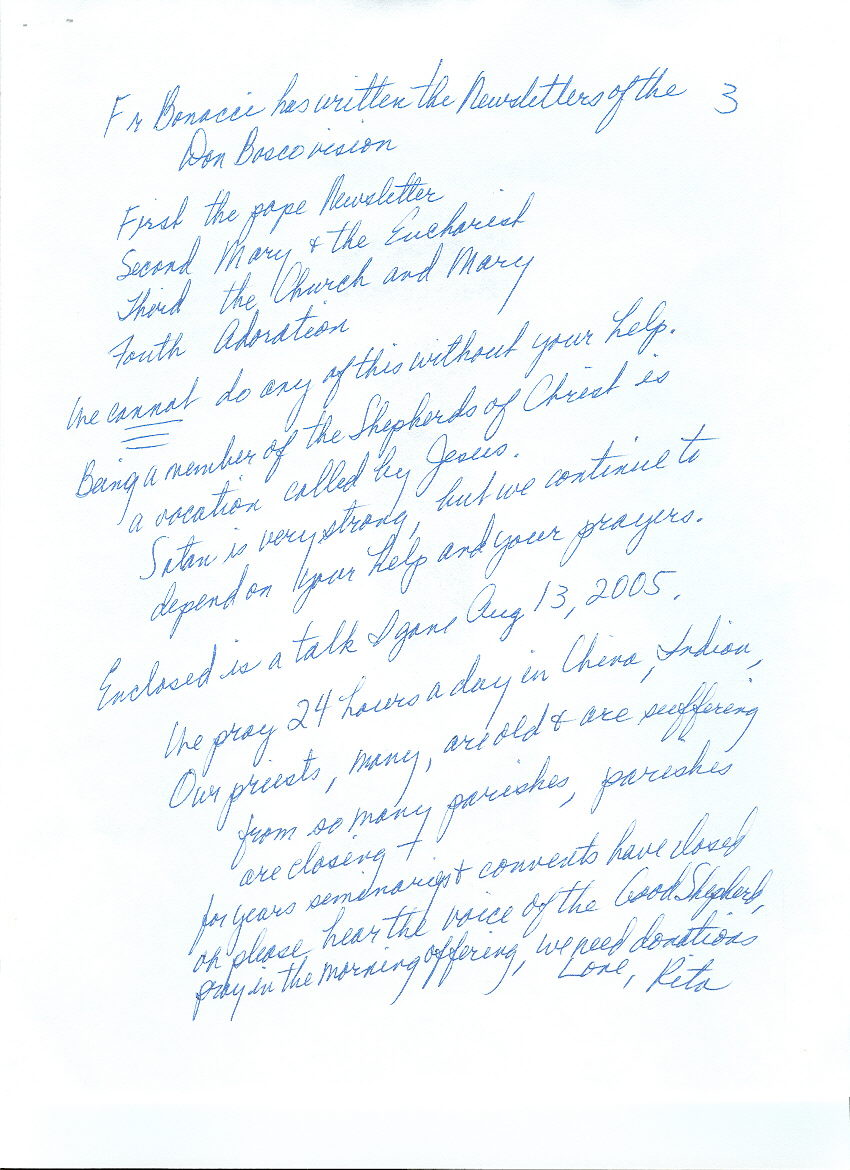 3
Fr Bonacci has written the Newsletters of the
Don Bosco vision
First the pope Newsletter
Second Mary & the Eucharist
Third the Church and Mary
Fouth Adoration
We cannot do any of this without your help.
Being a member of the Shepherds of Christ is
a vocation called by Jesus.
Satan is very strong, but we continue to
depend on your help and your prayers.
Enclosed is a talk I gave Aug 13, 2005.
We pray 24 hours a day in China, Indian,
Our priests, many, are old & are suffering
from so many parishes, parishes
are closing +
for years seminaries & convents have closed
oh please hear the voice of the Good Shepherd,
pray in the morning offering, we need donations
Love, Rita